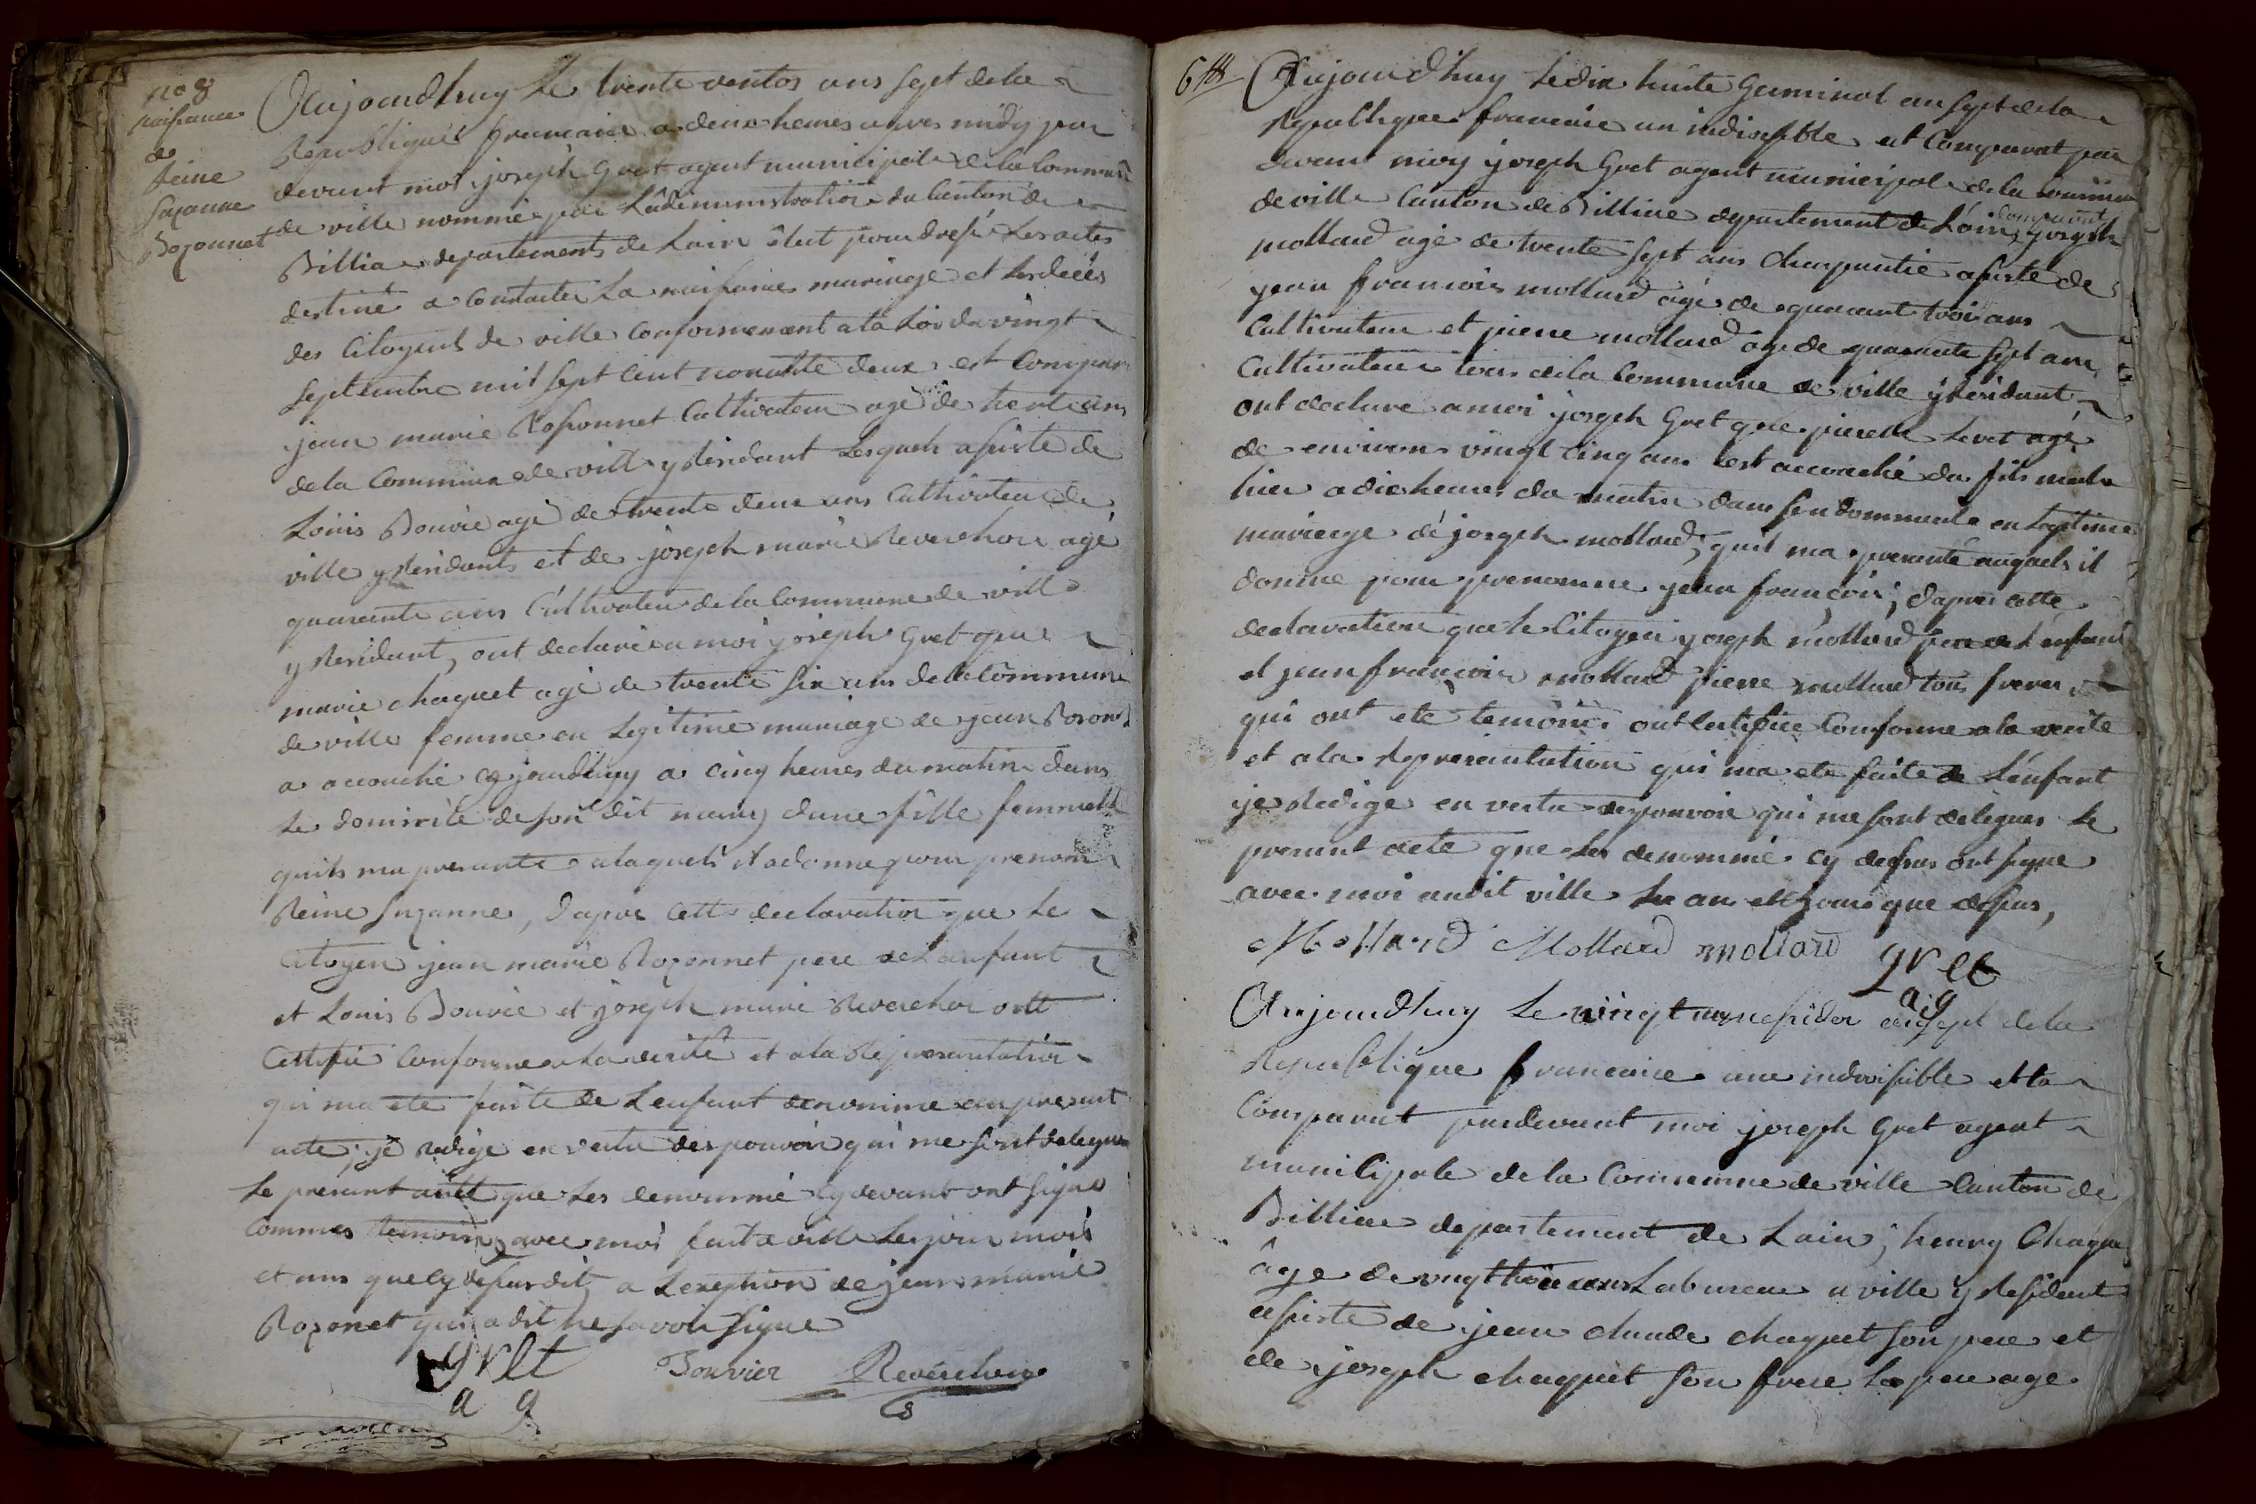 no 8
naissance
de
Reine
Suzanne
Bozonnet
Aujourdhuy Le trente ventos ans sept de la
Republique francaise a deux heures apres midy par
devant moi joseph Gret agent municipale de la Commune
de ville nomme par Ladministration du Canton de
Billia departements de Lain élut pour dresé Les actes
destiné a Constater La naisance mariage et Les décés
des Citoyens de ville Conformement a la Loi du vingt
septembre mil sept cent nonante deux est Compar
jean marie Bosonnet Cultivateur agé de trente ans
de la Commune de ville y Residant Lesquels asisté de
Louis Bouvié agé de trente deux ans Cultivateur de
ville y Residants et de joseph marie Reverchon agé
quarante ans Cultivateur de la Commune de ville
y Residant, ont declaré a moi joseph Gret que
marie chaquet agé de trente six ans de la Commune
de ville femme en Legitime mariage de jean Bozon
a accouché aujourdhuy a Cinq heures du matin dans
Le domicile de son dit mary dune fille femmelle
quils ma presanté a laquels il a donne pour prenom
Reine Suzanne, dapre cette declaration que Le
Citoyen jean marie Bozonnet pere de Lanfant
et Louis Bouvié et joseph marie Reverchon ont
Certifié Conforme a La verité et a la Representation
qui ma ete faite de Lenfant denomme au present
acte, je redige en vertu des pouvoir qui me sont delegue
Le presant acte que Les denommé Cy devant ont signé
Commes temoins avec moi fait a ville Les jour mois
et ans que Cy desus dit, a Lexeption de jean marie
Bozonet qui a dit ne savoir signe
gret Bouvier Reverchon
a g
6 Aujourdhuy Le dix huite Germinal an sept de la
Republique francaise un indivisible est Comparut par
devant moy joseph Gret agent municipal de la Commune
de ville Canton de Billiae departement de Lain, joseph
comparut
mollard agé de trente sept ans charpantié asiste de
jean francois mollard agé de quarant trois ans
Cultivateur et pierre mollard agé de quarante sept ans
Cultivateur tous de la Commune de ville y Residant,
ont declare a moi joseph Gret que pierette Levet agé
de environ vingt Cinq ans est accouché du fils male
hier a dix heures du matin dans son dommicile en Legitime
mariage de joseph mollard, quil ma presenté auquels il
donné pour prenomme jean françois, dapres cette
declaration que le Citoyen joseph mollard pere de Lenfant
et jean francois mollard pierre mollard tous freres
qui ont ete temoins ont Certifiée Conforme a la verite
et a la Representation qui ma ete faite de Lenfant
je redige en vertu des pouvoir qui me sont delegues Le
present acte que Les denommé cy desus ont signe
avec moi audit ville Les an et jours que desus,
Mollard Mollard mollard gret
a g
Aujourdhuy Le vingt un mesidor an sept de la
Republique francaise une indivisible est a
Comparut pardevant moi joseph Gret agent
municipale de la Commune de ville Canton de
Billiae departement de Lain, henry Chaque
âge de vingt trois ans Labureur a ville y Resident
asiste de jean claude chaquet son pere et
de joseph chaquet son frere Le pere age